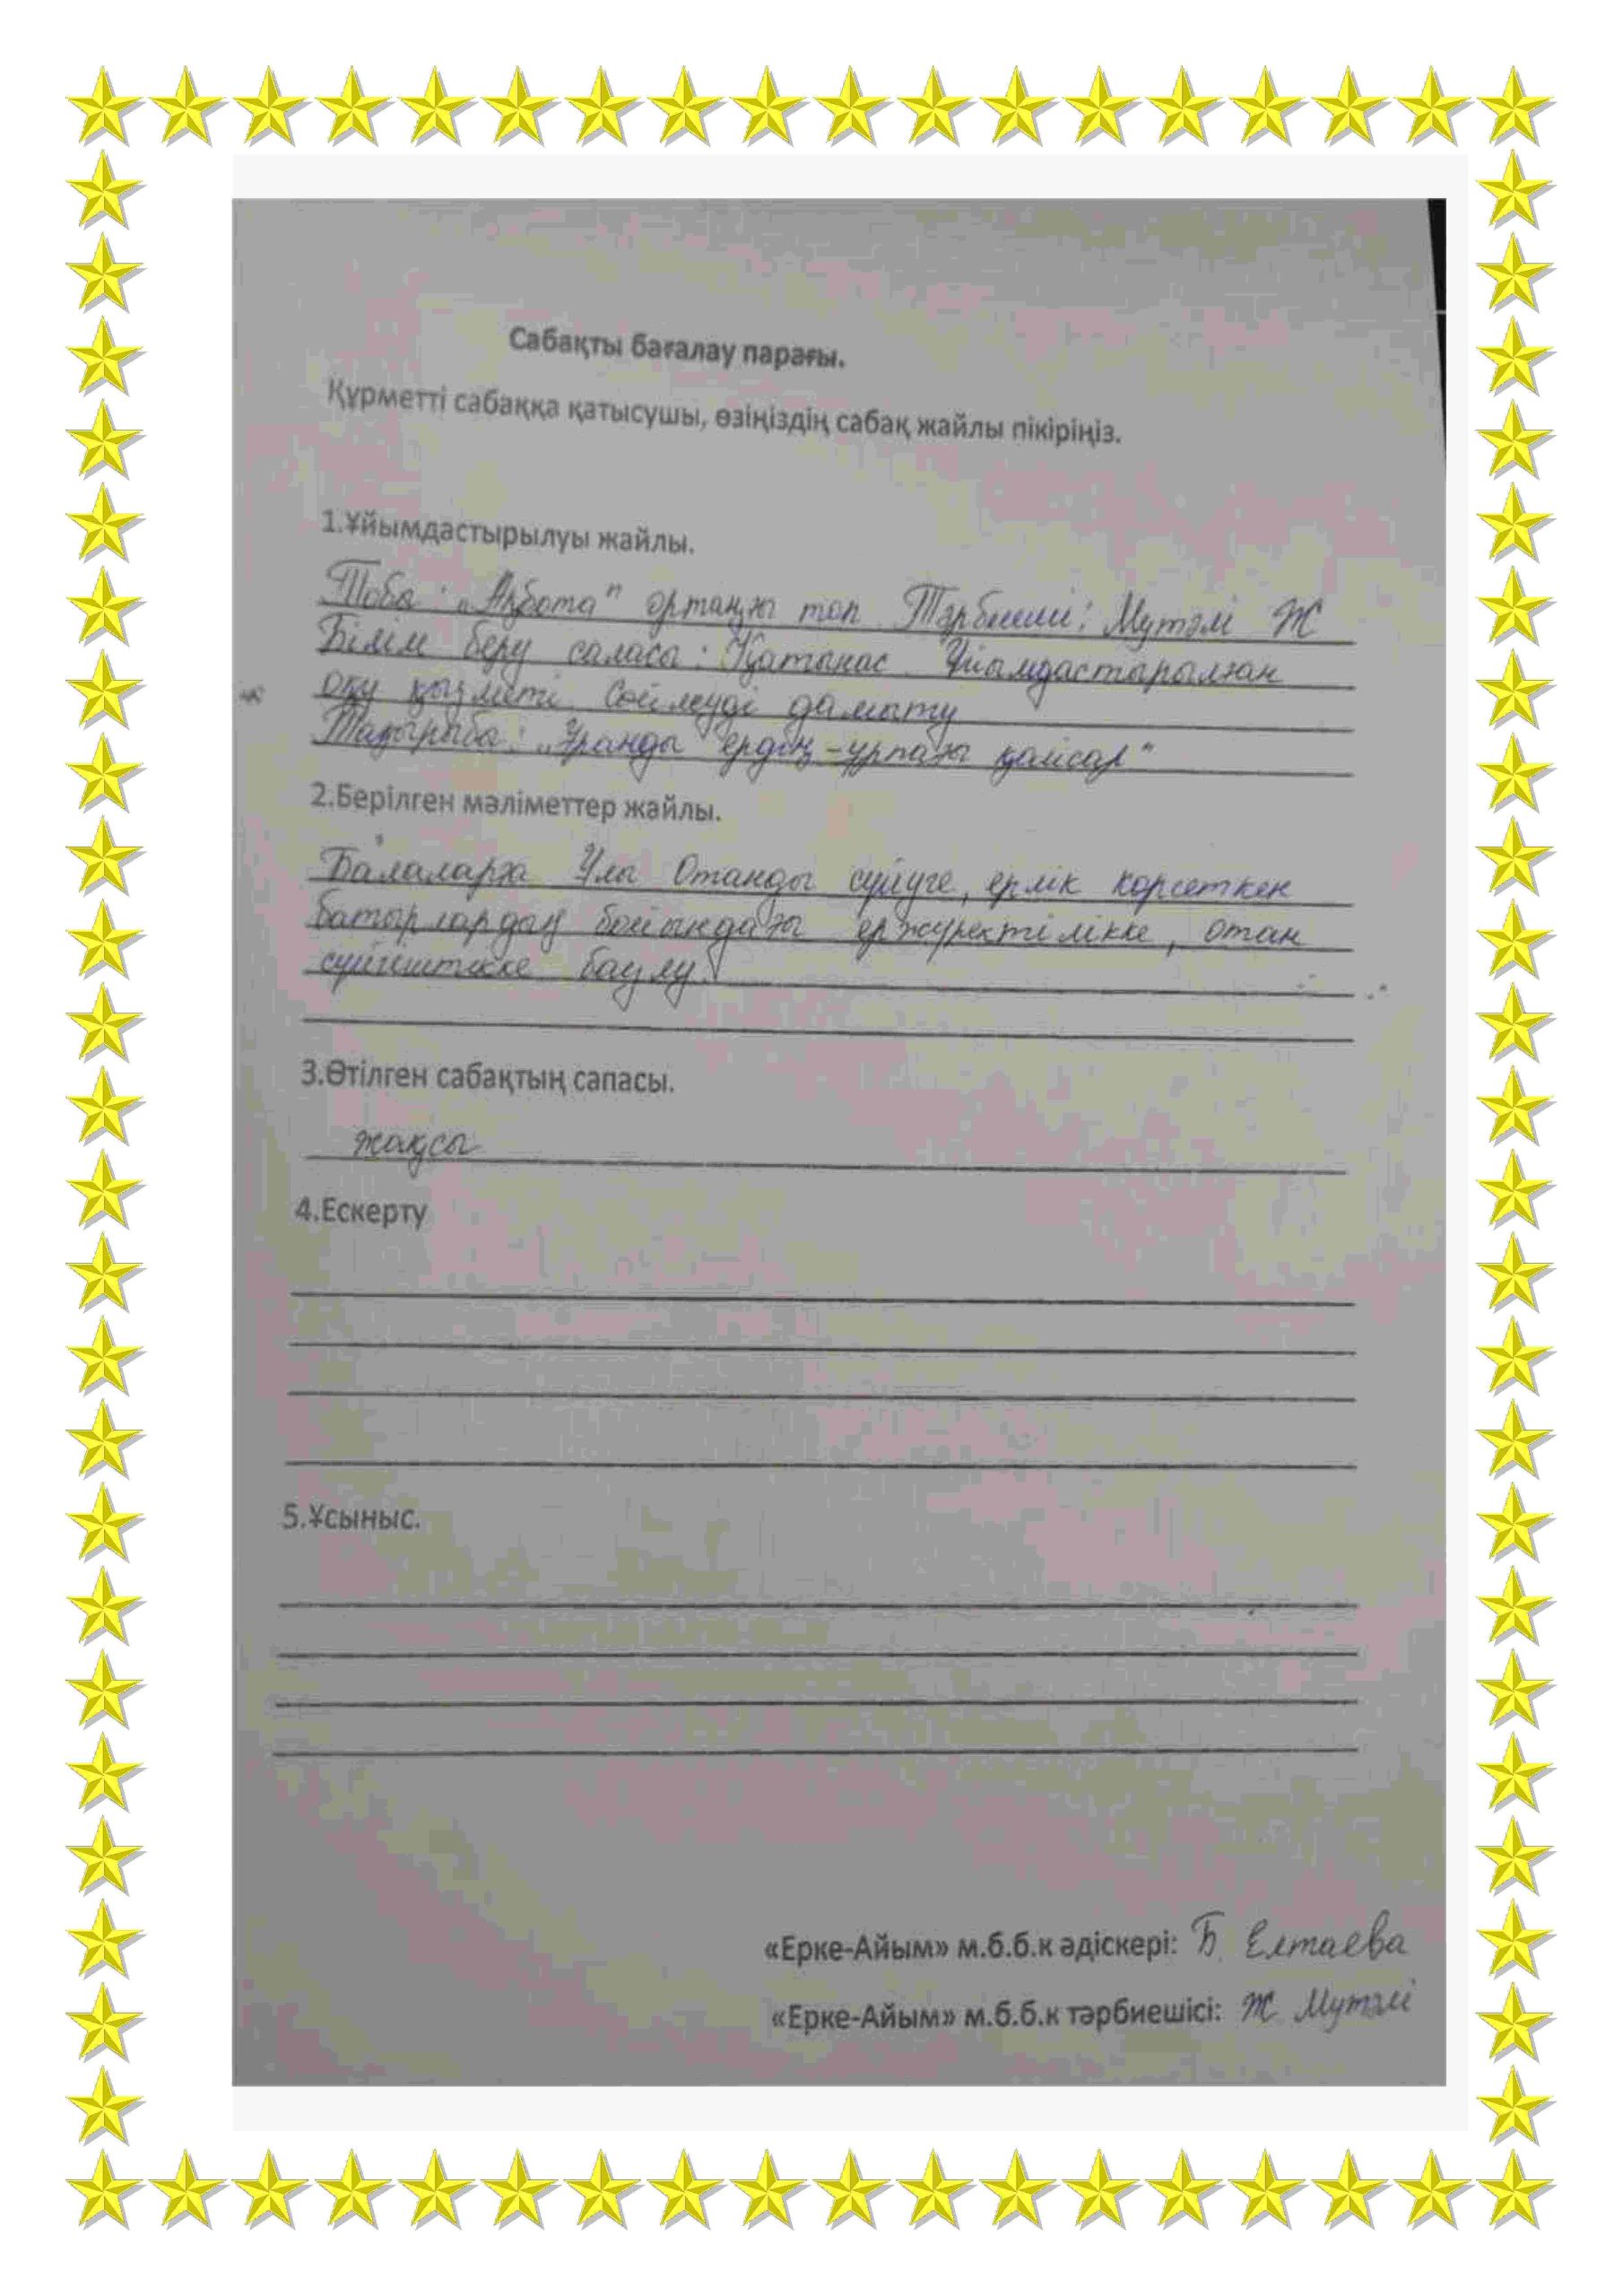 Сабақты бағалау парағы.
Құрметті сабаққа қатысушы, өзіңіздің сабақ жайлы пікіріңіз.
1.Ұйымдастырылуы жайлы.
Тобы: "Ақбота" ортаңғы топ Тәрбиеші: Мутәлі Ж
Білім беру саласы: Қатынас Ұйымдастырылған
оқу қызметі Сөйлеуді дамыту
Тақырыбы: "Ұранды ердің -ұрпағы қайсар"
2.Берілген мәліметтер жайлы.
Балаларға Ұлы Отанды сүйуге, ерлік көрсеткен
батырлардың бойындағы ержүректілікке, отан
сүйгіштікке баулу.
3.Өтілген сабақтың сапасы.
жақсы
4.Ескерту
5.Ұсыныс.
«Ерке-Айым» м.б.б.к әдіскері: Б. Елтаева
«Ерке-Айым» м.б.б.к тәрбиешісі: Ж Мутәлі